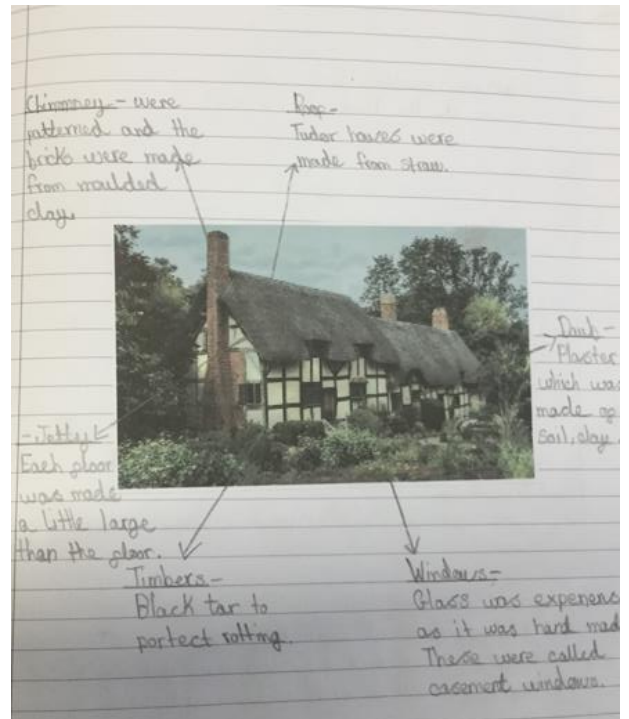 Chimney - were
patterned and the
bricks were made
from moulded
clay.
Roof -
Tudor houses were
made from straw.
Daub -
Plaster
which was
made of
soil, clay
- Jetty
Each floor
was made
a little large
than the floor.
Timbers -
Black tar to
portect rotting.
Windows -
Glass was expens
as it was hard mad
These were called
casement windows.